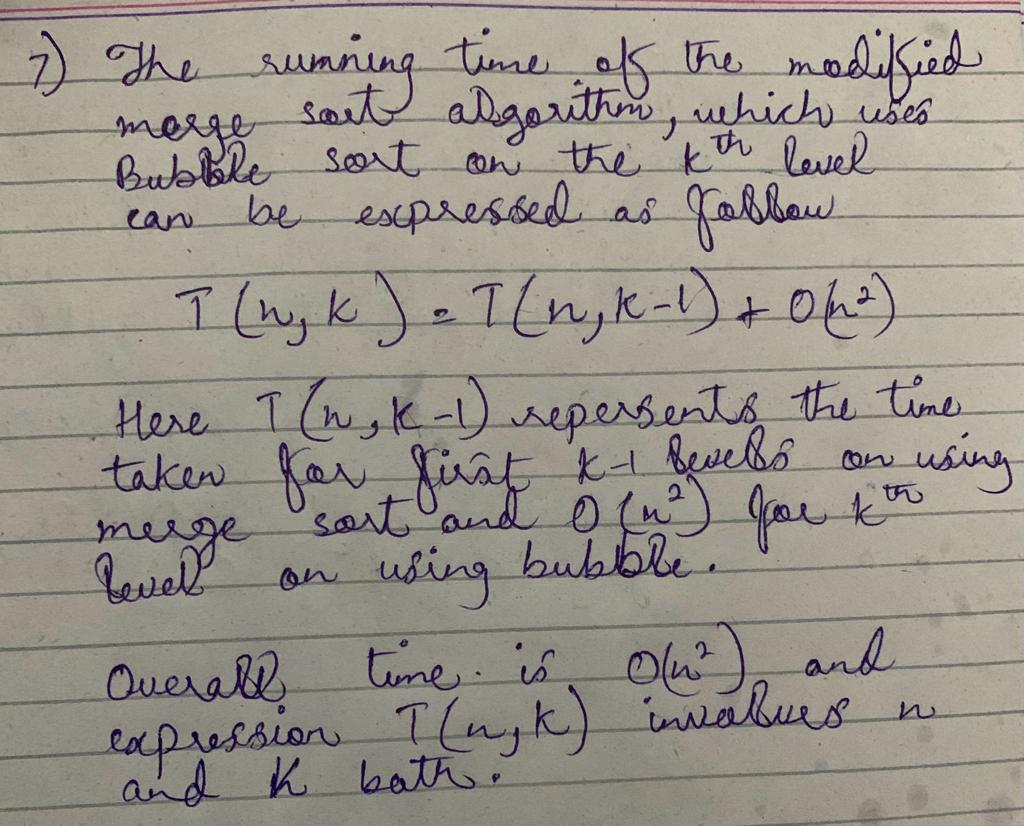 7) The running time of the modified
merge sort algorithm, which uses
Bubble sort on the kth level
can be expressed as follow
T(n, k) = T(n, k-1) + O(n²)
Here T(n, k-1) repersents the time
taken for first k-1 levels on using
merge sort and O(n²) for kth
level on using bubble.
Overall time. is O(n²) and
expression T(n, k) involves n
and K both.